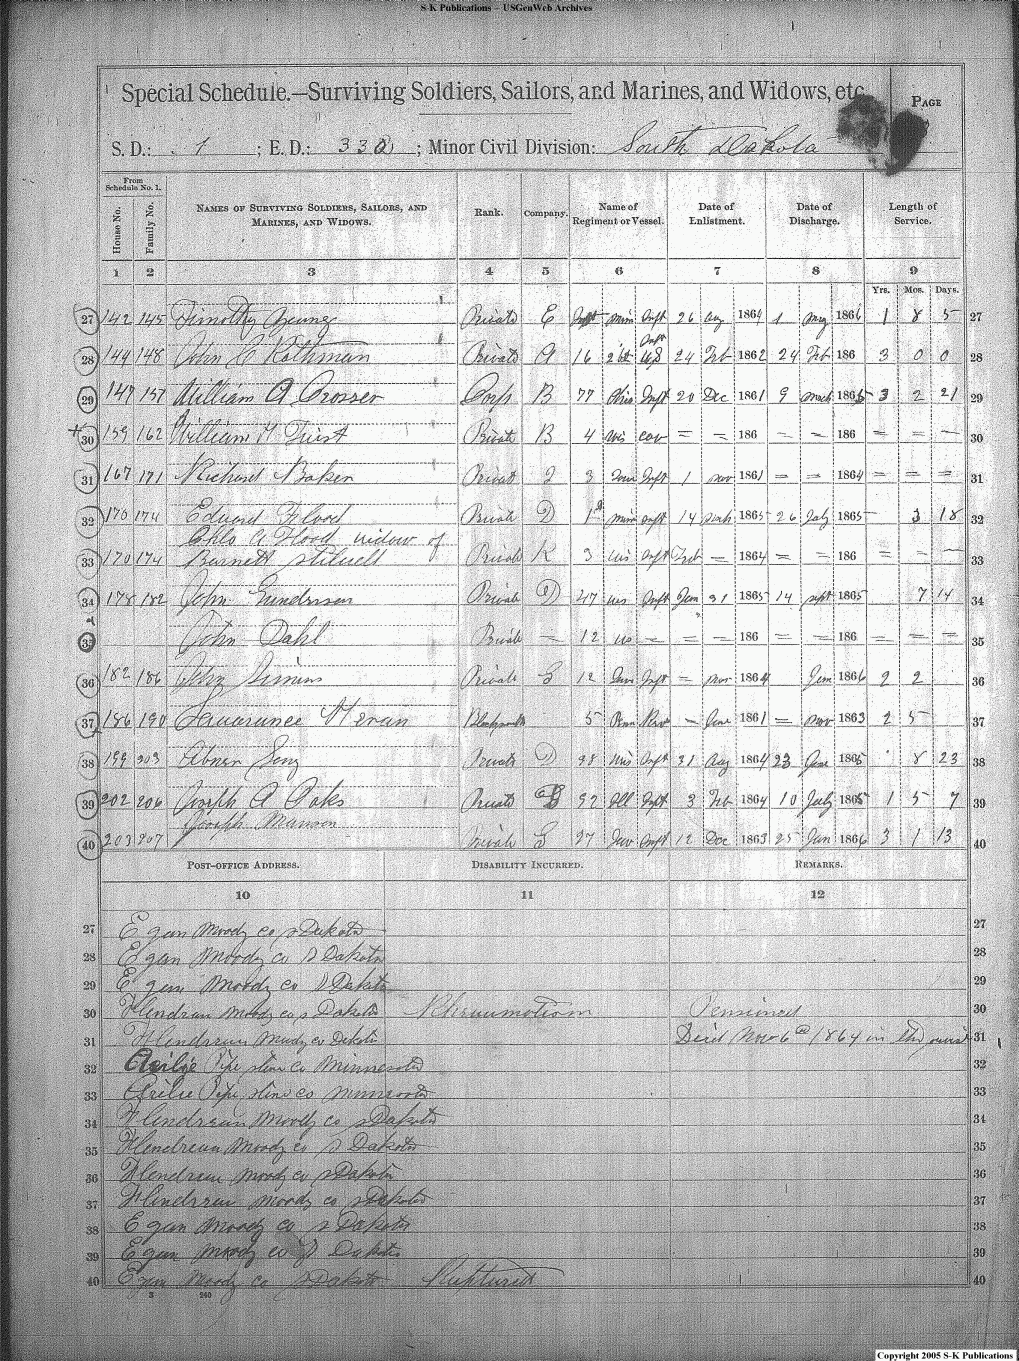 S-K Publications – USGenWeb Archives
Special Schedule.—Surviving Soldiers, Sailors, and Marines, and Widows, etc.
PAGE
S. D.: 1 ; E. D.: 332 ; Minor Civil Division: South Dakota
From Schedule No. 1.
House No.
Family No.
NAMES OF SURVIVING SOLDIERS, SAILORS, AND MARINES, AND WIDOWS.
Rank.
Company.
Name of Regiment or Vessel.
Date of Enlistment.
Date of Discharge.
Length of Service.
1 2 3 4 5 6 7 8 9
Yrs. Mos. Days.
27 142 145 Timothy Private E Inft 26 Aug 1864 1 May 1866 1 8 5 27
28 144 148 John C Rothman Private A 16 US Inft 24 Feb 1862 24 Feb 186 3 0 0 28
29 147 151 William A Crosser Corp B 77 Ohio Inft 20 Dec 1861 9 March 1865 3 2 21 29
30 159 162 William Private B 4 Wis Cav = = 186 = = 186 = = = 30
31 167 171 Richard Baker Private I 3 Inft 1 Nov 1861 = = 1864 = = = 31
32 170 174 Edward Flood Private D 1st Min Inft 14 March 1865 26 July 1865 3 18 32
Chlo A Flood widow of
33 170 174 Barnett Stilwell Private K 3 Wis Inft Feb = 1864 = = 186 = = = 33
34 178 182 John Gunderson Private D 47 Wis Inft Jan 31 1865 14 Sept 1865 7 14 34
35 John Dahl Private — 12 Wis = = = 186 = = 186 = = = 35
36 182 186 John Simins Private G 12 Inft = Nov 1864 Jan 1866 2 2 36
37 186 190 Lawarance Heran Blacksmith 5 Penn = June 1861 = Nov 1863 2 5 37
38 199 203 Abner Private D 38 Wis Inft 31 Aug 1864 23 June 1865 8 23 38
39 202 206 Joseph A Oaks Private B 92 Ill Inft 3 Feb 1864 10 July 1865 1 5 7 39
Joseph Manson
40 203 207 Private G 27 Inft 12 Dec 1863 25 Jan 1866 3 1 13 40
POST-OFFICE ADDRESS. DISABILITY INCURRED. REMARKS.
10 11 12
27 Egan Moody co S Dakota 27
28 Egan Moody co S Dakota 28
29 Egan Moody co S Dakota 29
30 Flendreau Moody co S Dakota Rheumotism 30
31 Flendreau Moody co Dakota Died Nov 6 1864 in the 31
32 Pipe stone co Minnesota 32
33 Pipe stone co Minnesota 33
34 Flendreau Moody co S Dakota 34
35 Flendreau Moody co S Dakota 35
36 Flendreau Moody co S Dakota 36
37 Flendreau Moody co S Dakota 37
38 Egan Moody co S Dakota 38
39 Egan Moody co S Dakota 39
40 Egan Moody co S Dakota 40
3 240
Copyright 2005 S-K Publications